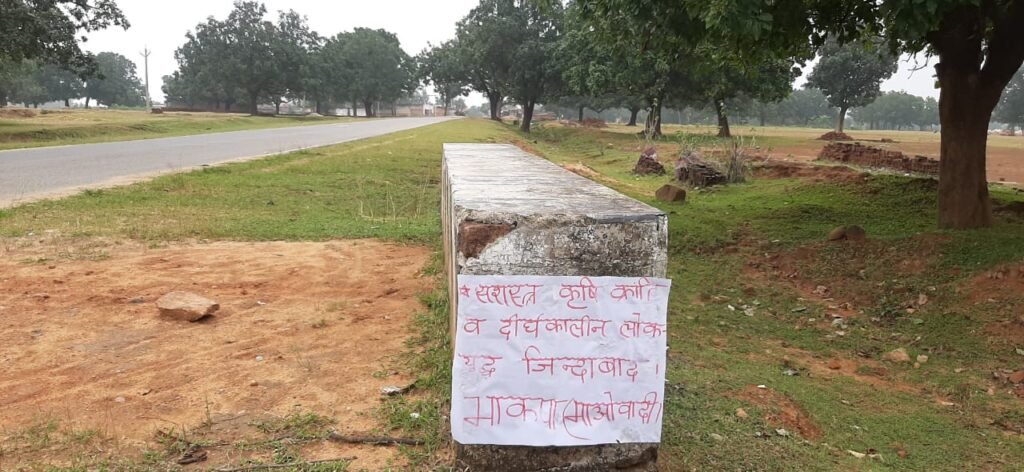 * सशस्त्र कृषि क्रांति
व दीर्घकालीन लोक-
युद्ध जिन्दाबाद ।
भाकपा (माओवादी)